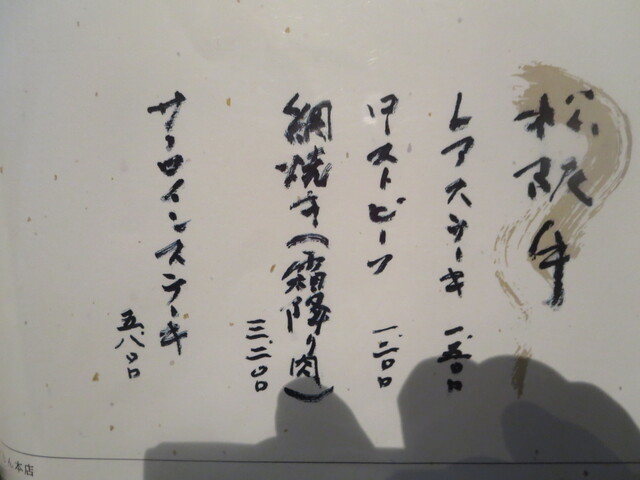 松阪牛
レアステーキ 一、五〇〇
ローストビーフ 一、二〇〇
網焼き(霜降り肉) 三、二〇〇
サーロインステーキ 五、八〇〇
本店